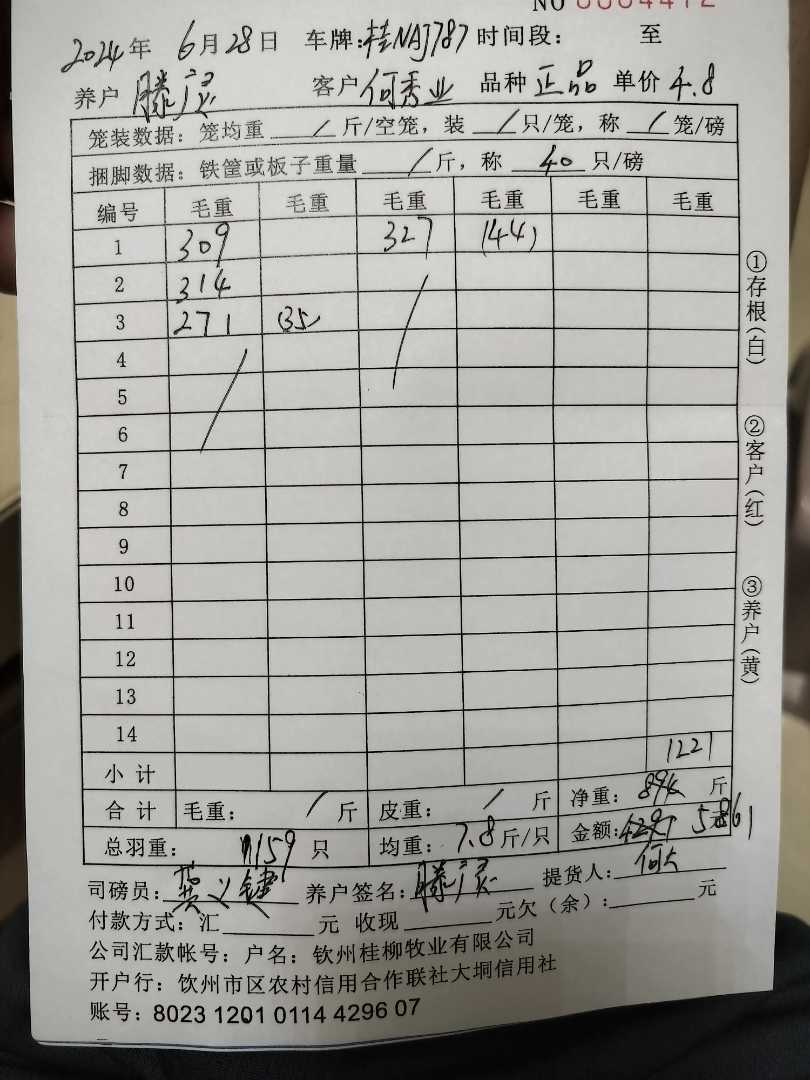 NO 0004412
2024年 6月28日 车牌:桂NAJ787 时间段: 至
养户 滕 客户 何秀业 品种 正品 单价 4.8
笼装数据: 笼均重 / 斤/空笼, 装 / 只/笼, 称 / 笼/磅
捆脚数据: 铁筐或板子重量 / 斤, 称 40 只/磅
编号 毛重 毛重 毛重 毛重 毛重 毛重
1 309 327 (44)
2 314
3 271 (35)
4
5
6
7
8
9
10
11
12
13
14
小计 1221
合计 毛重: / 斤 皮重: / 斤 净重: 894 斤
总羽重: 159 只 均重: 7.8 斤/只 金额: 4291 5861 元
司磅员: 黄义键 养户签名: 滕 提货人: 何
付款方式: 汇 元 收现 元欠(余): 元
公司汇款帐号: 户名: 钦州桂柳牧业有限公司
开户行: 钦州市区农村信用合作联社大垌信用社
账号: 8023 1201 0114 4296 07
①存根(白)
②客户(红)
③养户(黄)